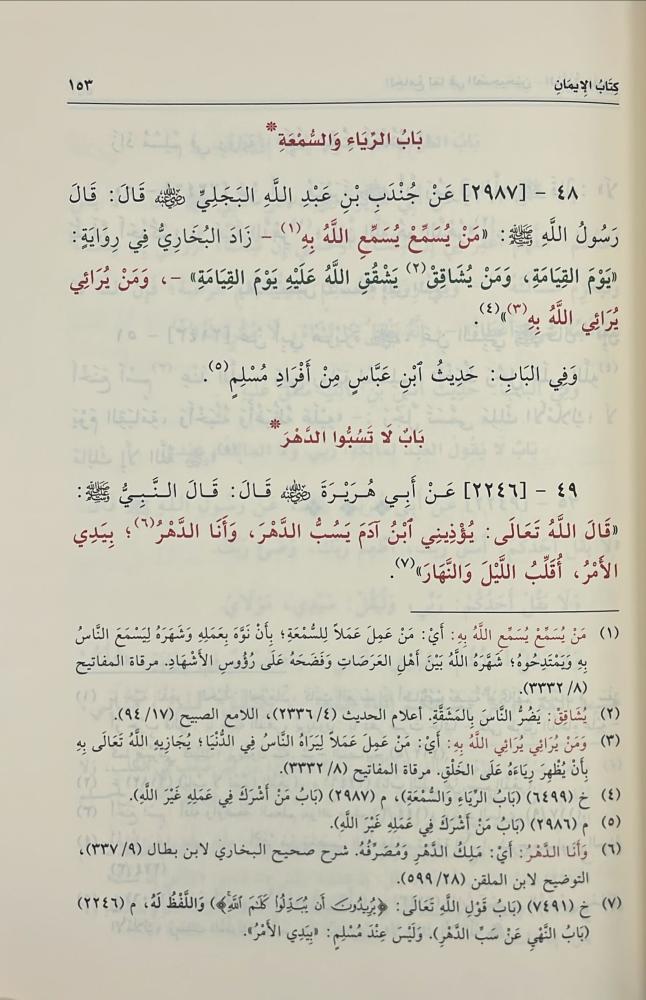 كِتَابُ الإِيمَانِ ١٥٣
بَابُ الرِّيَاءِ وَالسُّمْعَةِ*
٤٨ - [٢٩٨٧] عَنْ جُنْدَبِ بْنِ عَبْدِ اللَّهِ البَجَلِيِّ ﵁ قَالَ: قَالَ
رَسُولُ اللَّهِ ﷺ: «مَنْ يُسَمِّعْ يُسَمِّعِ اللَّهُ بِهِ(١) - زَادَ البُخَارِيُّ فِي رِوَايَةٍ:
«يَوْمَ القِيَامَةِ، وَمَنْ يُشَاقِقْ(٢) يَشْقُقِ اللَّهُ عَلَيْهِ يَوْمَ القِيَامَةِ» -، وَمَنْ يُرَائِي
يُرَائِي اللَّهُ بِهِ(٣)»(٤).
وَفِي البَابِ: حَدِيثُ ٱبْنِ عَبَّاسٍ مِنْ أَفْرَادِ مُسْلِمٍ(٥).
بَابُ لَا تَسُبُّوا الدَّهْرَ*
٤٩ - [٢٢٤٦] عَنْ أَبِي هُرَيْرَةَ ﵁ قَالَ: قَالَ النَّبِيُّ ﷺ:
«قَالَ اللَّهُ تَعَالَى: يُؤْذِينِي ٱبْنُ آدَمَ يَسُبُّ الدَّهْرَ، وَأَنَا الدَّهْرُ(٦)؛ بِيَدِي
الأَمْرُ، أُقَلِّبُ اللَّيْلَ وَالنَّهَارَ»(٧).
(١) مَنْ يُسَمِّعْ يُسَمِّعِ اللَّهُ بِهِ: أَيْ: مَنْ عَمِلَ عَمَلًا لِلسُّمْعَةِ؛ بِأَنْ نَوَّهَ بِعَمَلِهِ وَشَهَرَهُ لِيَسْمَعَ النَّاسُ
بِهِ وَيَمْتَدِحُوهُ؛ شَهَّرَهُ اللَّهُ بَيْنَ أَهْلِ العَرَصَاتِ وَفَضَحَهُ عَلَى رُؤُوسِ الأَشْهَادِ. مرقاة المفاتيح
(٨/ ٣٣٣٢).
(٢) يُشَاقِقْ: يَضُرُّ النَّاسَ بِالمَشَقَّةِ. أعلام الحديث (٤/ ٢٣٣٦)، اللامع الصبيح (١٧/ ٩٤).
(٣) وَمَنْ يُرَائِي يُرَائِي اللَّهُ بِهِ: أَيْ: مَنْ عَمِلَ عَمَلًا لِيَرَاهُ النَّاسُ فِي الدُّنْيَا؛ يُجَازِيهِ اللَّهُ تَعَالَى بِهِ
بِأَنْ يُظْهِرَ رِيَاءَهُ عَلَى الخَلْقِ. مرقاة المفاتيح (٨/ ٣٣٣٢).
(٤) خ (٦٤٩٩) (بَابُ الرِّيَاءِ وَالسُّمْعَةِ)، م (٢٩٨٧) (بَابُ مَنْ أَشْرَكَ فِي عَمَلِهِ غَيْرَ اللَّهِ).
(٥) م (٢٩٨٦) (بَابُ مَنْ أَشْرَكَ فِي عَمَلِهِ غَيْرَ اللَّهِ).
(٦) وَأَنَا الدَّهْرُ: أَيْ: مَلِكُ الدَّهْرِ وَمُصَرِّفُهُ. شرح صحيح البخاري لابن بطال (٩/ ٣٣٧)،
التوضيح لابن الملقن (٢٨/ ٥٩٩).
(٧) خ (٧٤٩١) (بَابُ قَوْلِ اللَّهِ تَعَالَى: ﴿يُرِيدُونَ أَن يُبَدِّلُوا كَلَٰمَ ٱللَّهِ﴾) وَاللَّفْظُ لَهُ، م (٢٢٤٦)
(بَابُ النَّهْيِ عَنْ سَبِّ الدَّهْرِ). وَلَيْسَ عِنْدَ مُسْلِمٍ: «بِيَدِي الأَمْرُ».